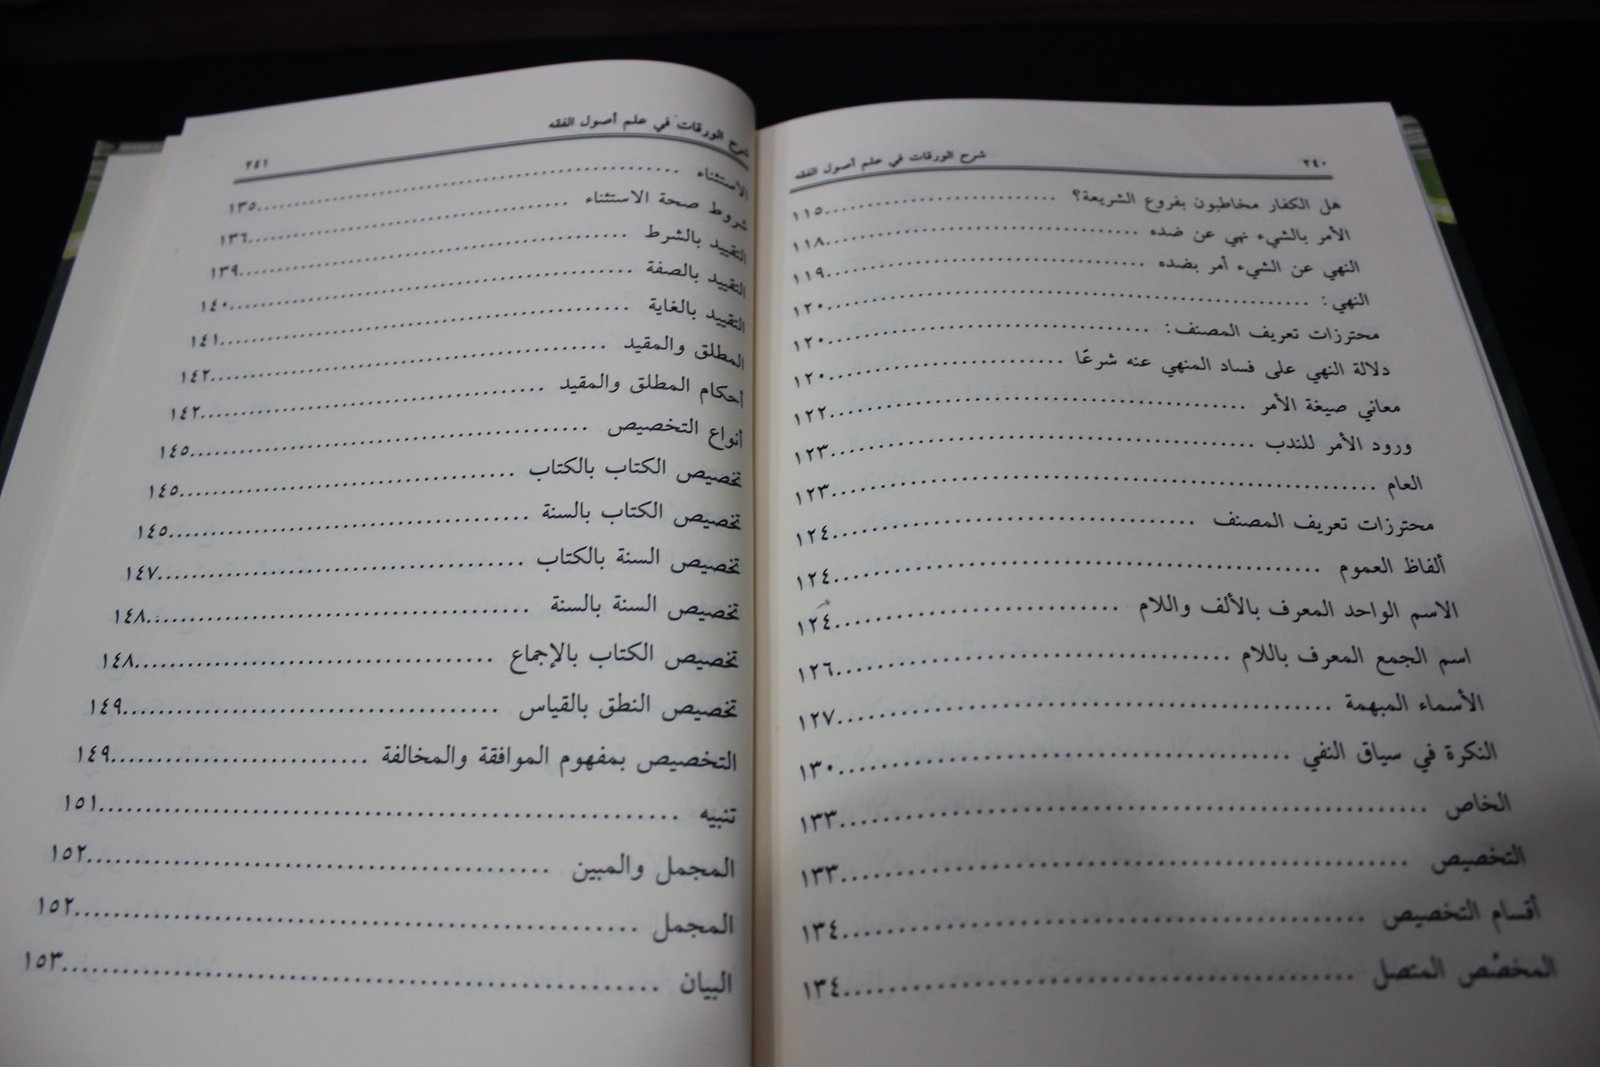 ٢٤٠ شرح الورقات في علم أصول الفقه
هل الكفار مخاطبون بفروع الشريعة؟ ........................ ١١٥
الأمر بالشيء نهي عن ضده ........................ ١١٨
النهي عن الشيء أمر بضده ........................ ١١٩
النهي: ........................ ١٢٠
محترزات تعريف المصنف: ........................ ١٢٠
دلالة النهي على فساد المنهي عنه شرعًا ........................ ١٢٠
معاني صيغة الأمر ........................ ١٢٢
ورود الأمر للندب ........................ ١٢٣
العام ........................ ١٢٣
محترزات تعريف المصنف ........................ ١٢٤
ألفاظ العموم ........................ ١٢٤
الاسم الواحد المعرف بالألف واللام ........................ ١٢٤
اسم الجمع المعرف باللام ........................ ١٢٦
الأسماء المبهمة ........................ ١٢٧
النكرة في سياق النفي ........................ ١٣٠
الخاص ........................ ١٣٣
التخصيص ........................ ١٣٣
أقسام التخصيص ........................ ١٣٤
المخصّص المتصل ........................ ١٣٤
شرح الورقات في علم أصول الفقه ٢٤١
الاستثناء ........................ ١٣٥
شروط صحة الاستثناء ........................ ١٣٦
التقييد بالشرط ........................ ١٣٩
التقييد بالصفة ........................ ١٤٠
التقييد بالغاية ........................ ١٤١
المطلق والمقيد ........................ ١٤٢
أحكام المطلق والمقيد ........................ ١٤٢
أنواع التخصيص ........................ ١٤٥
تخصيص الكتاب بالكتاب ........................ ١٤٥
تخصيص الكتاب بالسنة ........................ ١٤٥
تخصيص السنة بالكتاب ........................ ١٤٧
تخصيص السنة بالسنة ........................ ١٤٨
تخصيص الكتاب بالإجماع ........................ ١٤٨
تخصيص النطق بالقياس ........................ ١٤٩
التخصيص بمفهوم الموافقة والمخالفة ........................ ١٤٩
تنبيه ........................ ١٥١
المجمل والمبين ........................ ١٥٢
المجمل ........................ ١٥٢
البيان ........................ ١٥٣